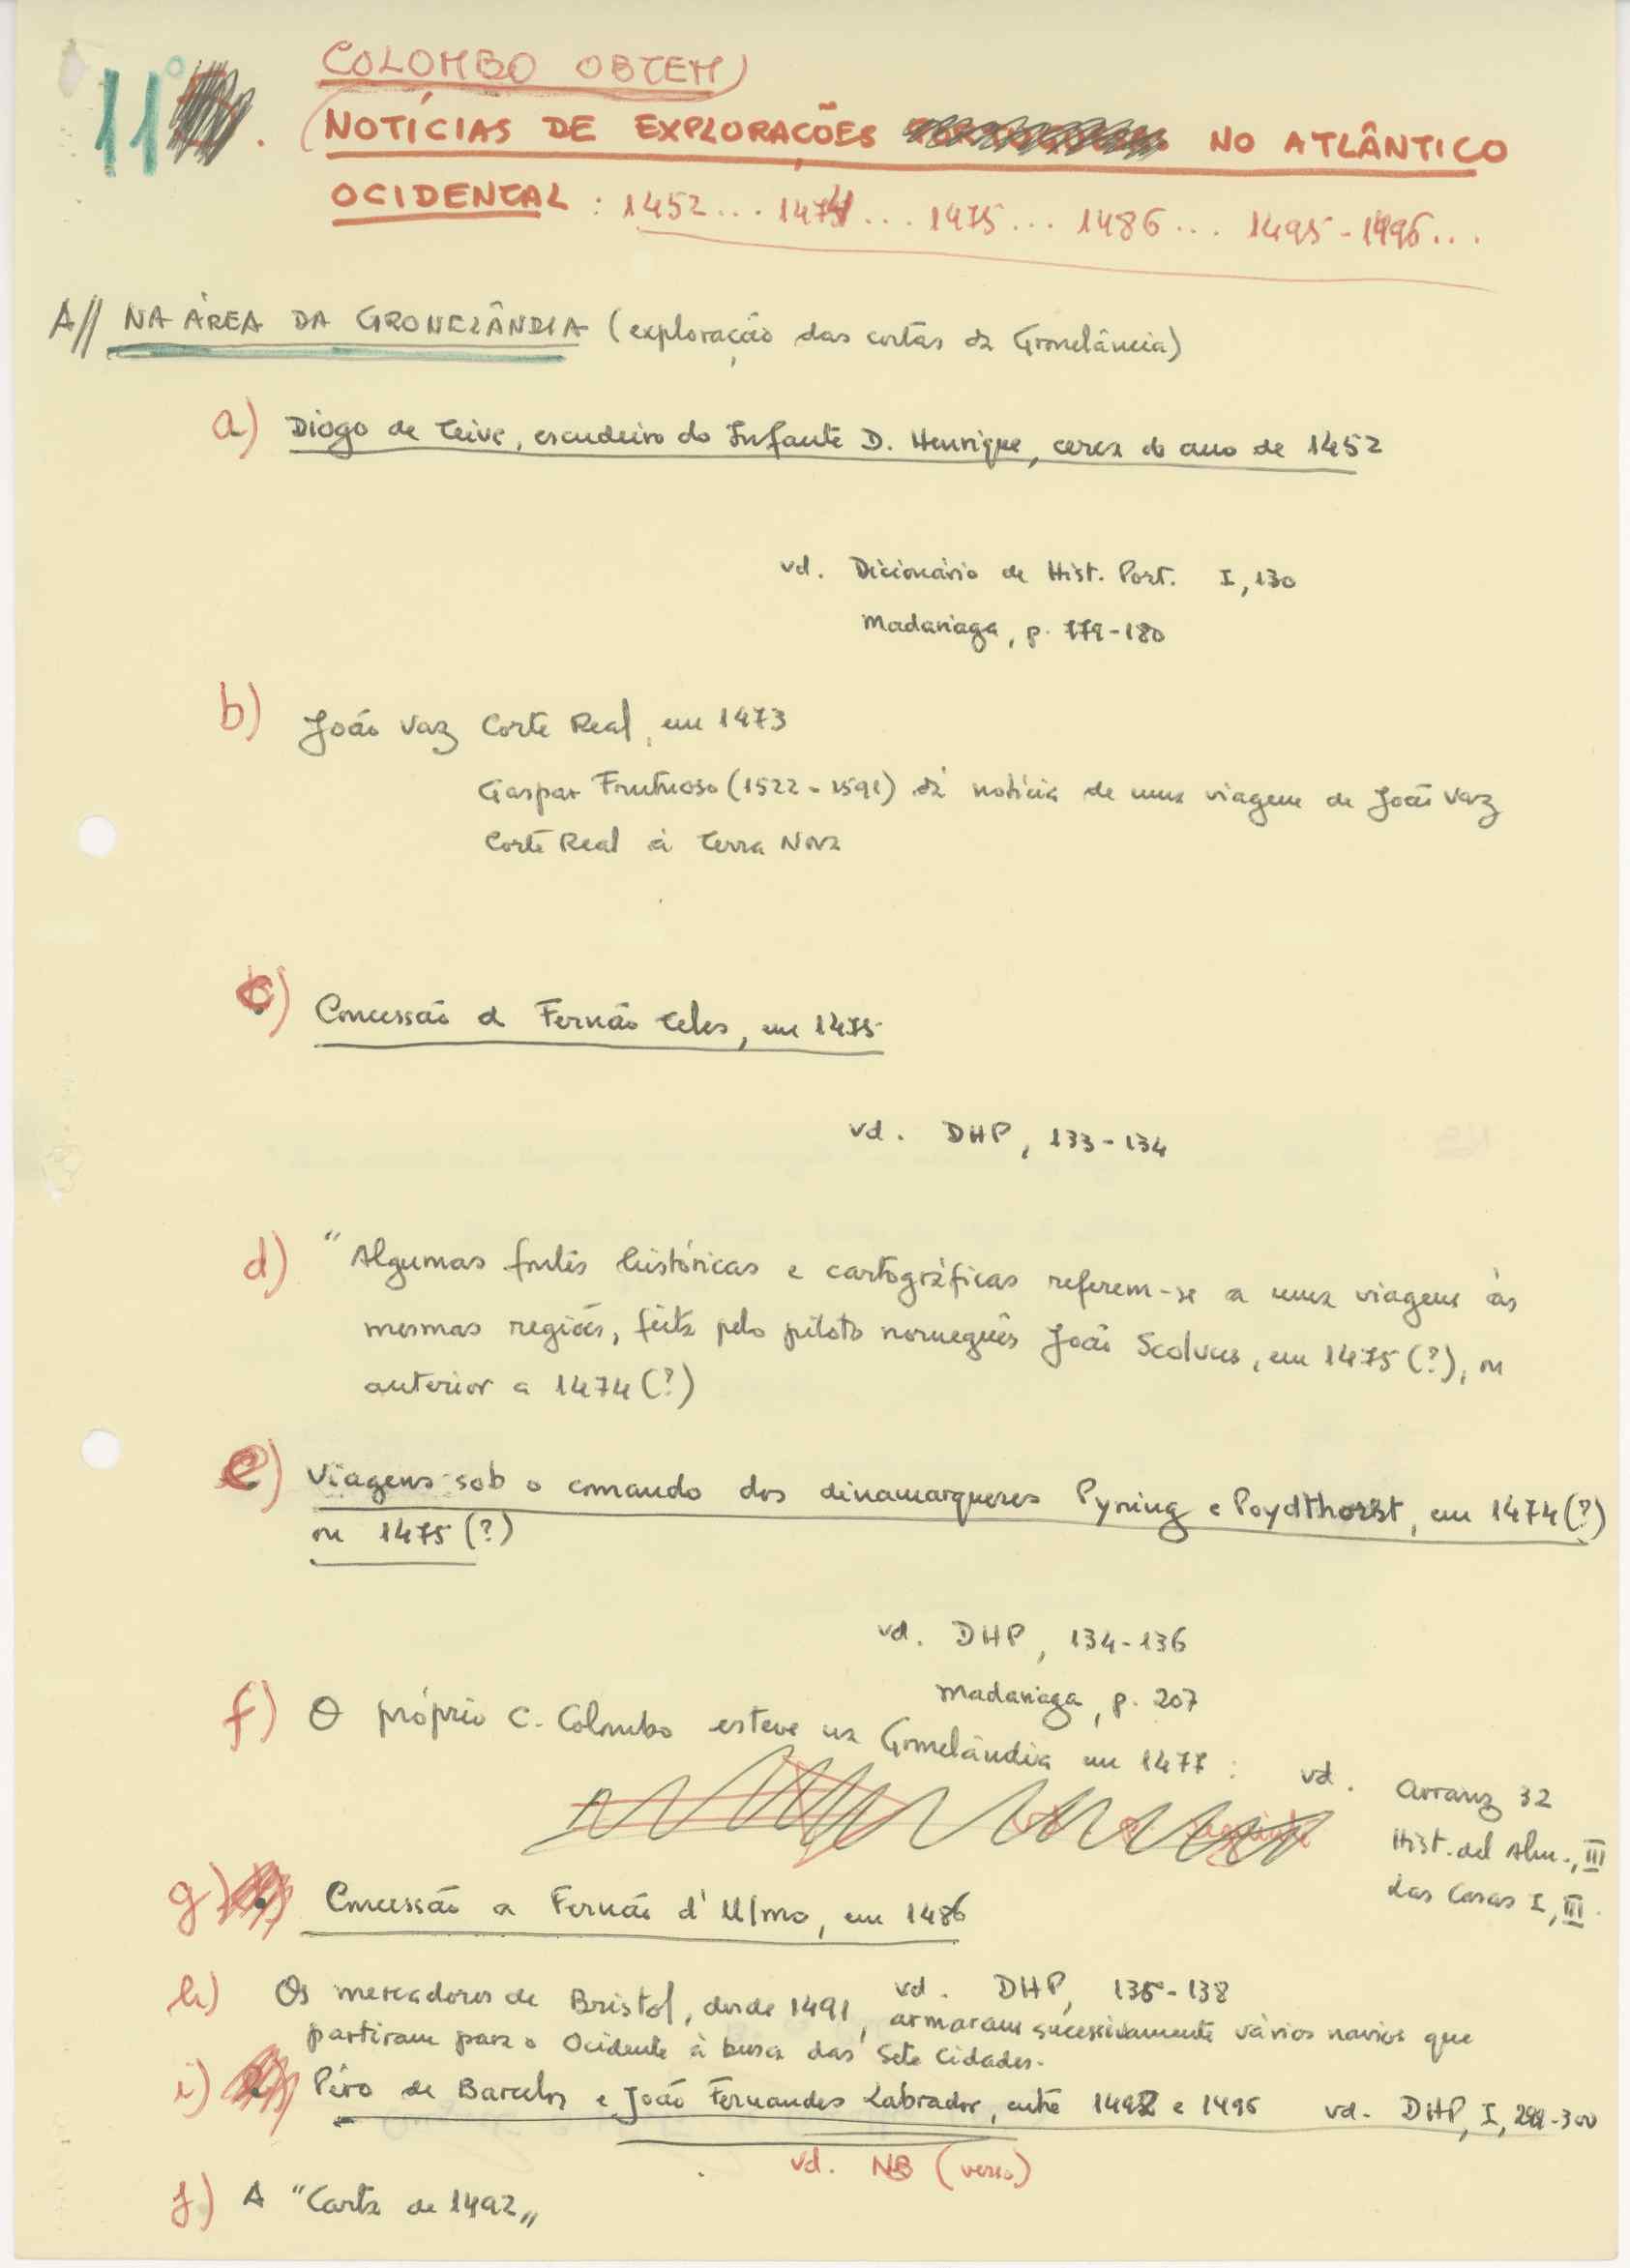 11º.
COLOMBO OBTEM
NOTÍCIAS DE EXPLORAÇÕES NO ATLÂNTICO
OCIDENTAL : 1452... 1474... 1475... 1486... 1495-1496...
A// NA ÁREA DA GRONELÂNDIA (exploração das costas da Gronelândia)
a) Diogo de Teive, escudeiro do Infante D. Henrique, cerca do ano de 1452
vd. Dicionário de Hist. Port. I, 130
Madariaga, p. 179-180
b) João Vaz Corte Real, em 1473
Gaspar Frutuoso (1522-1591) dá notícia de uma viagem de João Vaz
Corte Real à Terra Nova
c) Concessão a Fernão Teles, em 1475
vd. DHP, 133-134
d) "Algumas fontes históricas e cartográficas referem-se a uma viagem às
mesmas regiões, feita pelo piloto norueguês João Scolvus, em 1475 (?), ou
anterior a 1474 (?)
e) Viagens sob o comando dos dinamarqueses Pyning e Poydthorst, em 1474 (?)
ou 1475 (?)
vd. DHP, 134-136
Madariaga, p. 207
f) O próprio C. Colombo esteve na Gronelândia em 1477 : vd. Arranz 32
Hist. del Alm., III
Las Casas I, III.
g) Concessão a Fernão d'Ulmo, em 1486
vd. DHP, 136-138
h) Os mercadores de Bristol, desde 1491, armaram sucessivamente vários navios que
partiram para o Ocidente à busca das Sete Cidades.
i) Pêro de Barcelos e João Fernandes Labrador, entre 1492 e 1495 vd. DHP, I, 299-300
vd. NB (verso)
j) A "Carta de 1492"